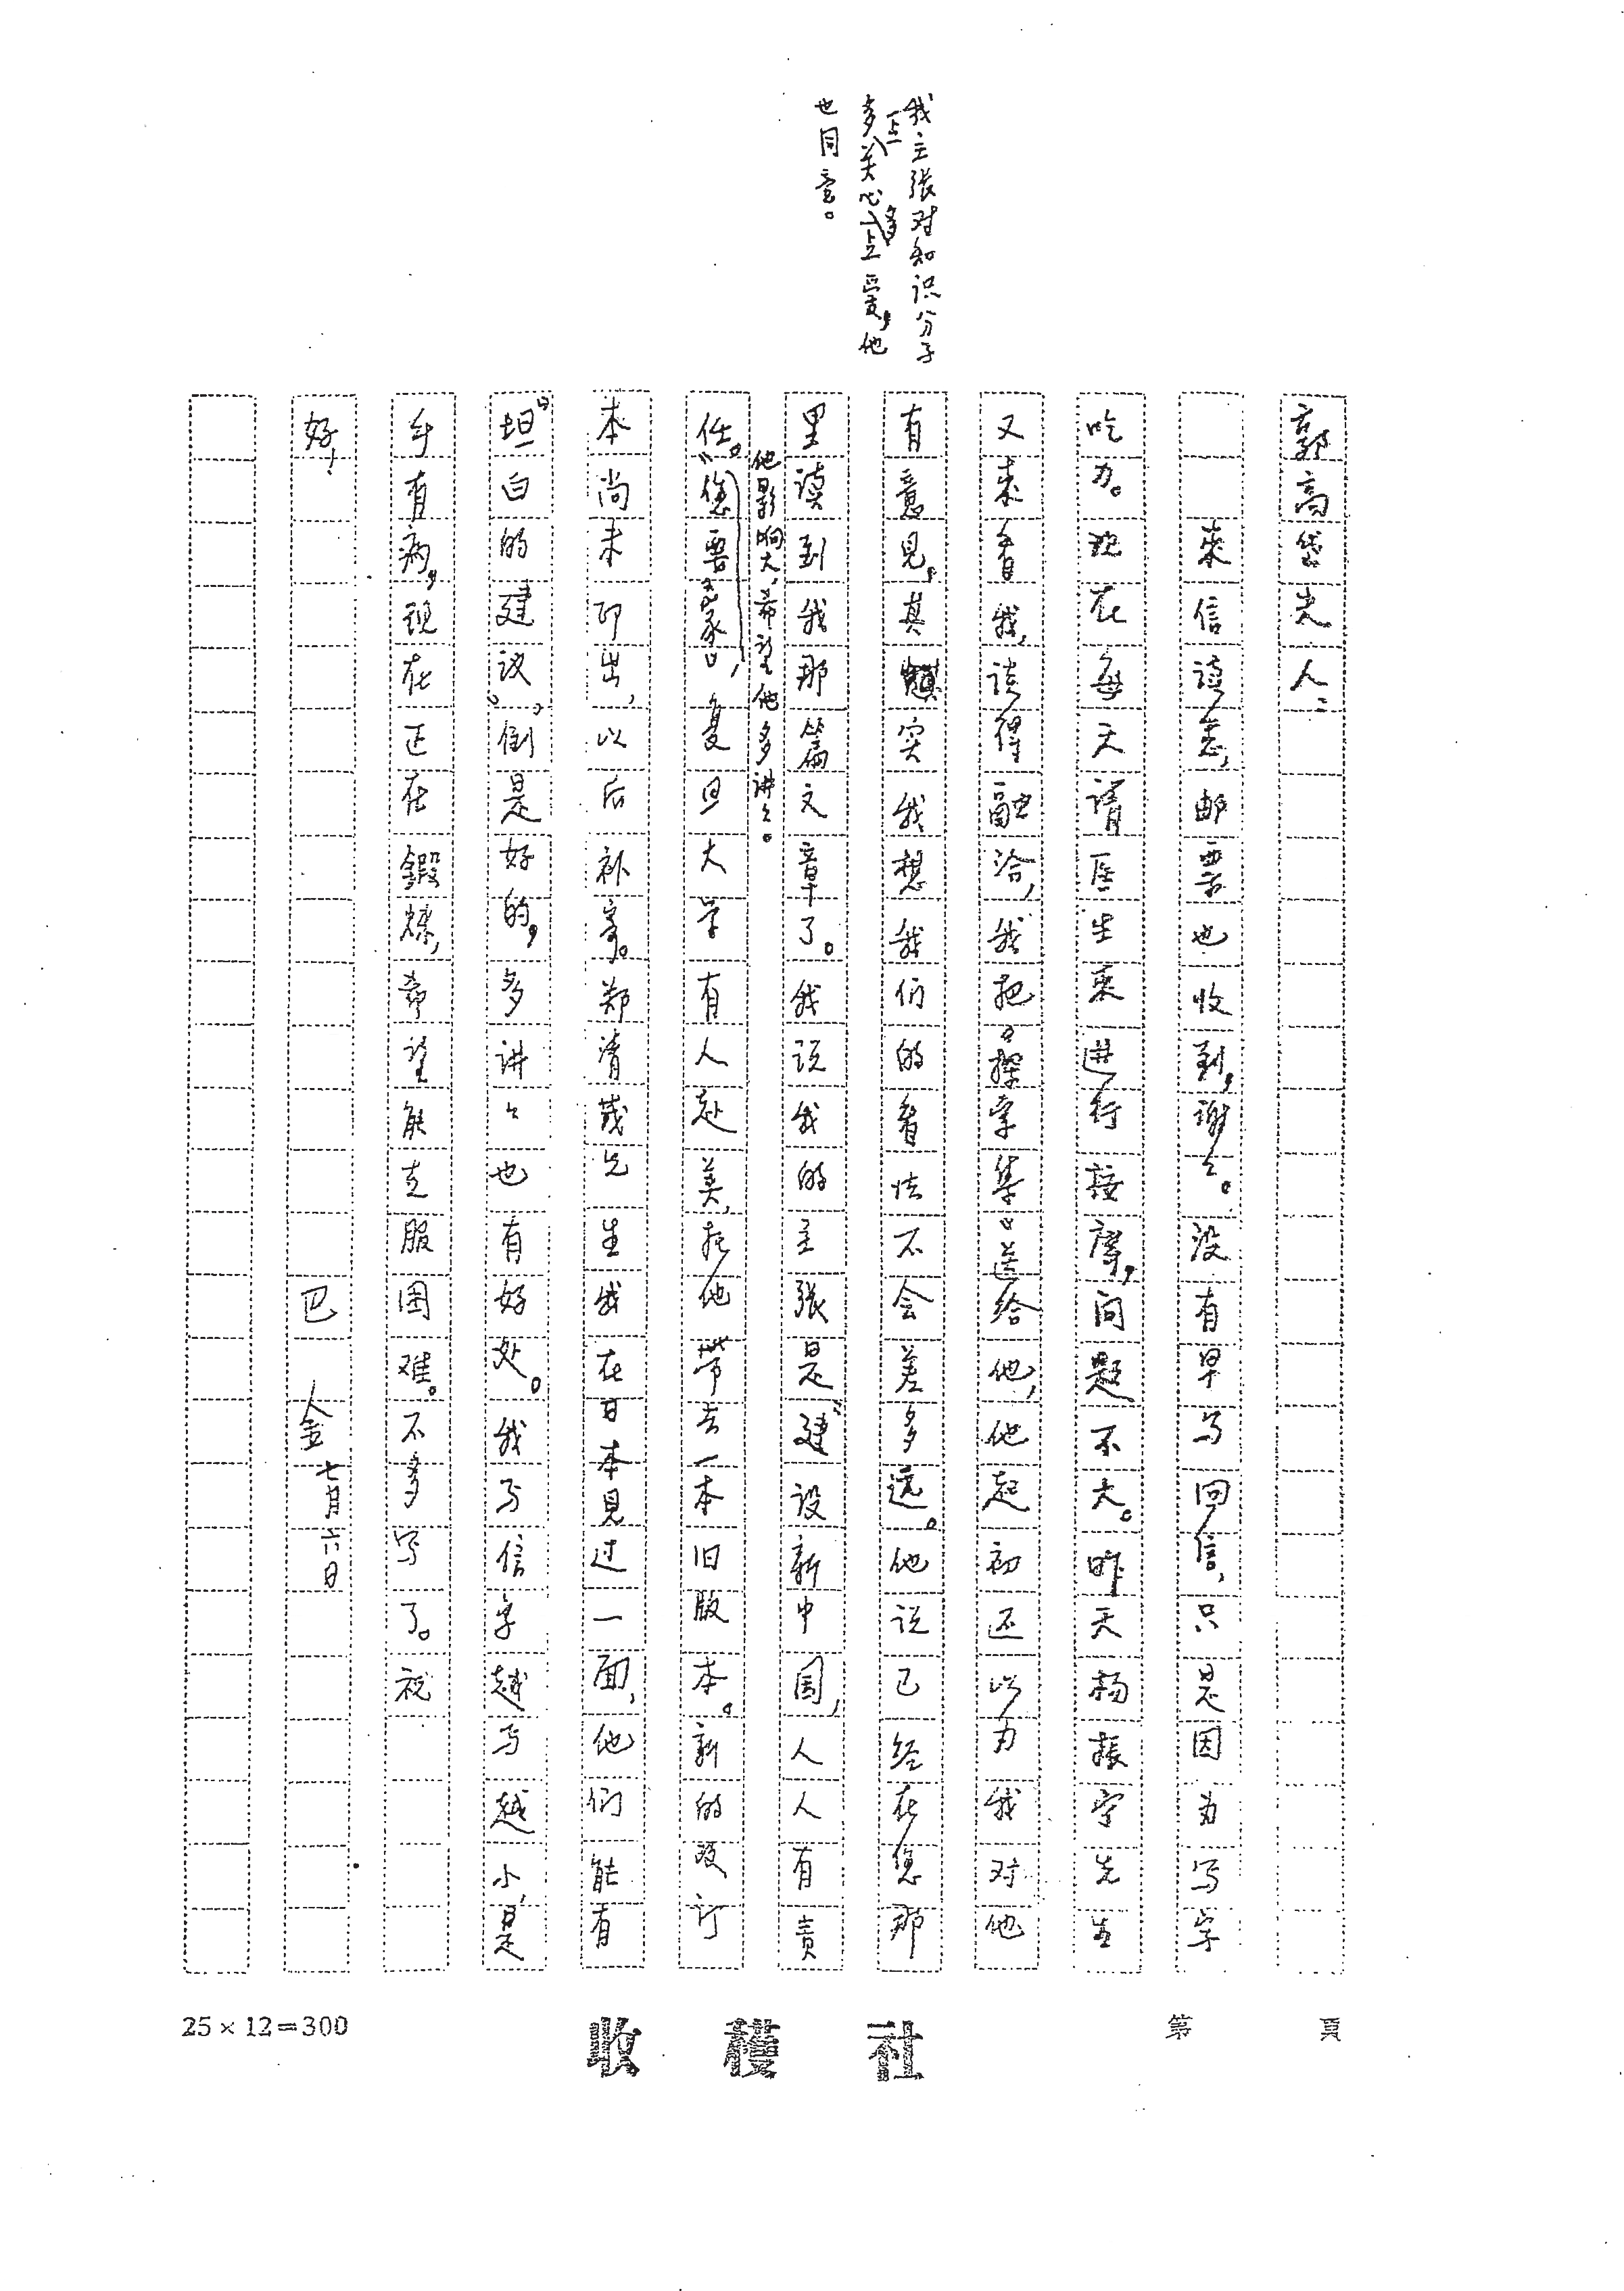 我主张对知识分子
多一点关心、多一点爱，他
也同意。
郭高岱先人：
来信读悉，邮票也收到，谢々。没有早写回信，只是因为写字
吃力。现在每天请医生来进行按摩，问题不大。昨天杨振宁先生
又来看我，谈得融洽，我把《探索集》送给他，他起初还以为我对他
有意见，其实我想我们的看法不会差多远。他说已经在您那
里读到我那篇文章了。我说我的主张是“建设新中国，人人有责
任。”
他影响大，希望他多讲々。
您要《家》，复旦大学有人赴美，托他带去一本旧版本。新的改订
本尚未印出，以后补寄。郑清茂先生我在日本见过一面，他们能有
“坦白的建议”，倒是好的，多讲々也有好处。我写信字越写越小，是
有病，现在正在锻炼，希望能克服困难。不多写了。祝
好！
巴金 七月六日
25×12=300
收穫社
第 頁